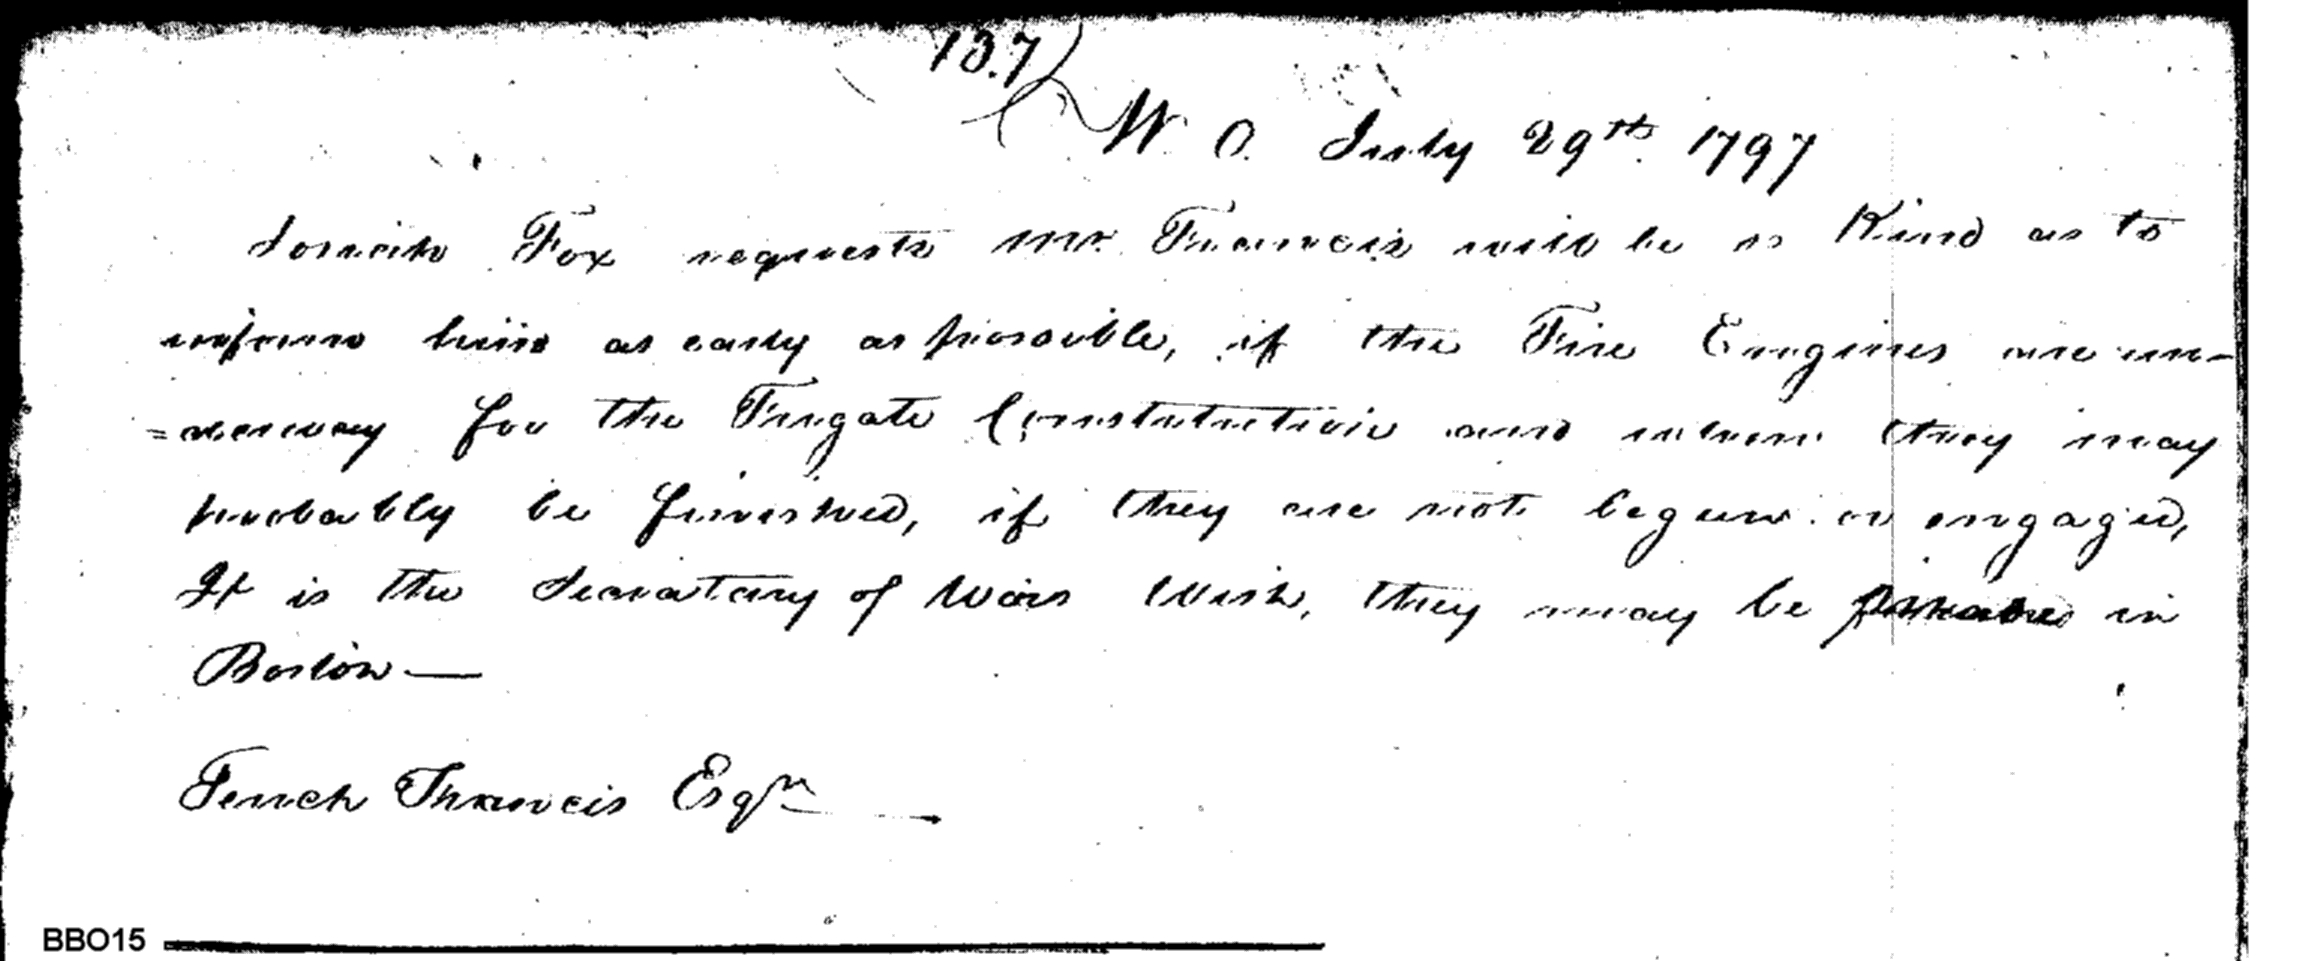 137
W. O. July 29th 1797
Josiah Fox requests Mr. Francis will be so Kind as to
inform him as early as possible, if the Fire Engines are un-
=derway for the Frigate Constitution and when they may
probably be finished, if they are not begun or engaged,
It is the Secretary of Wars Wish, they may be in
Boston —
Tench Francis Esqr
BBO15